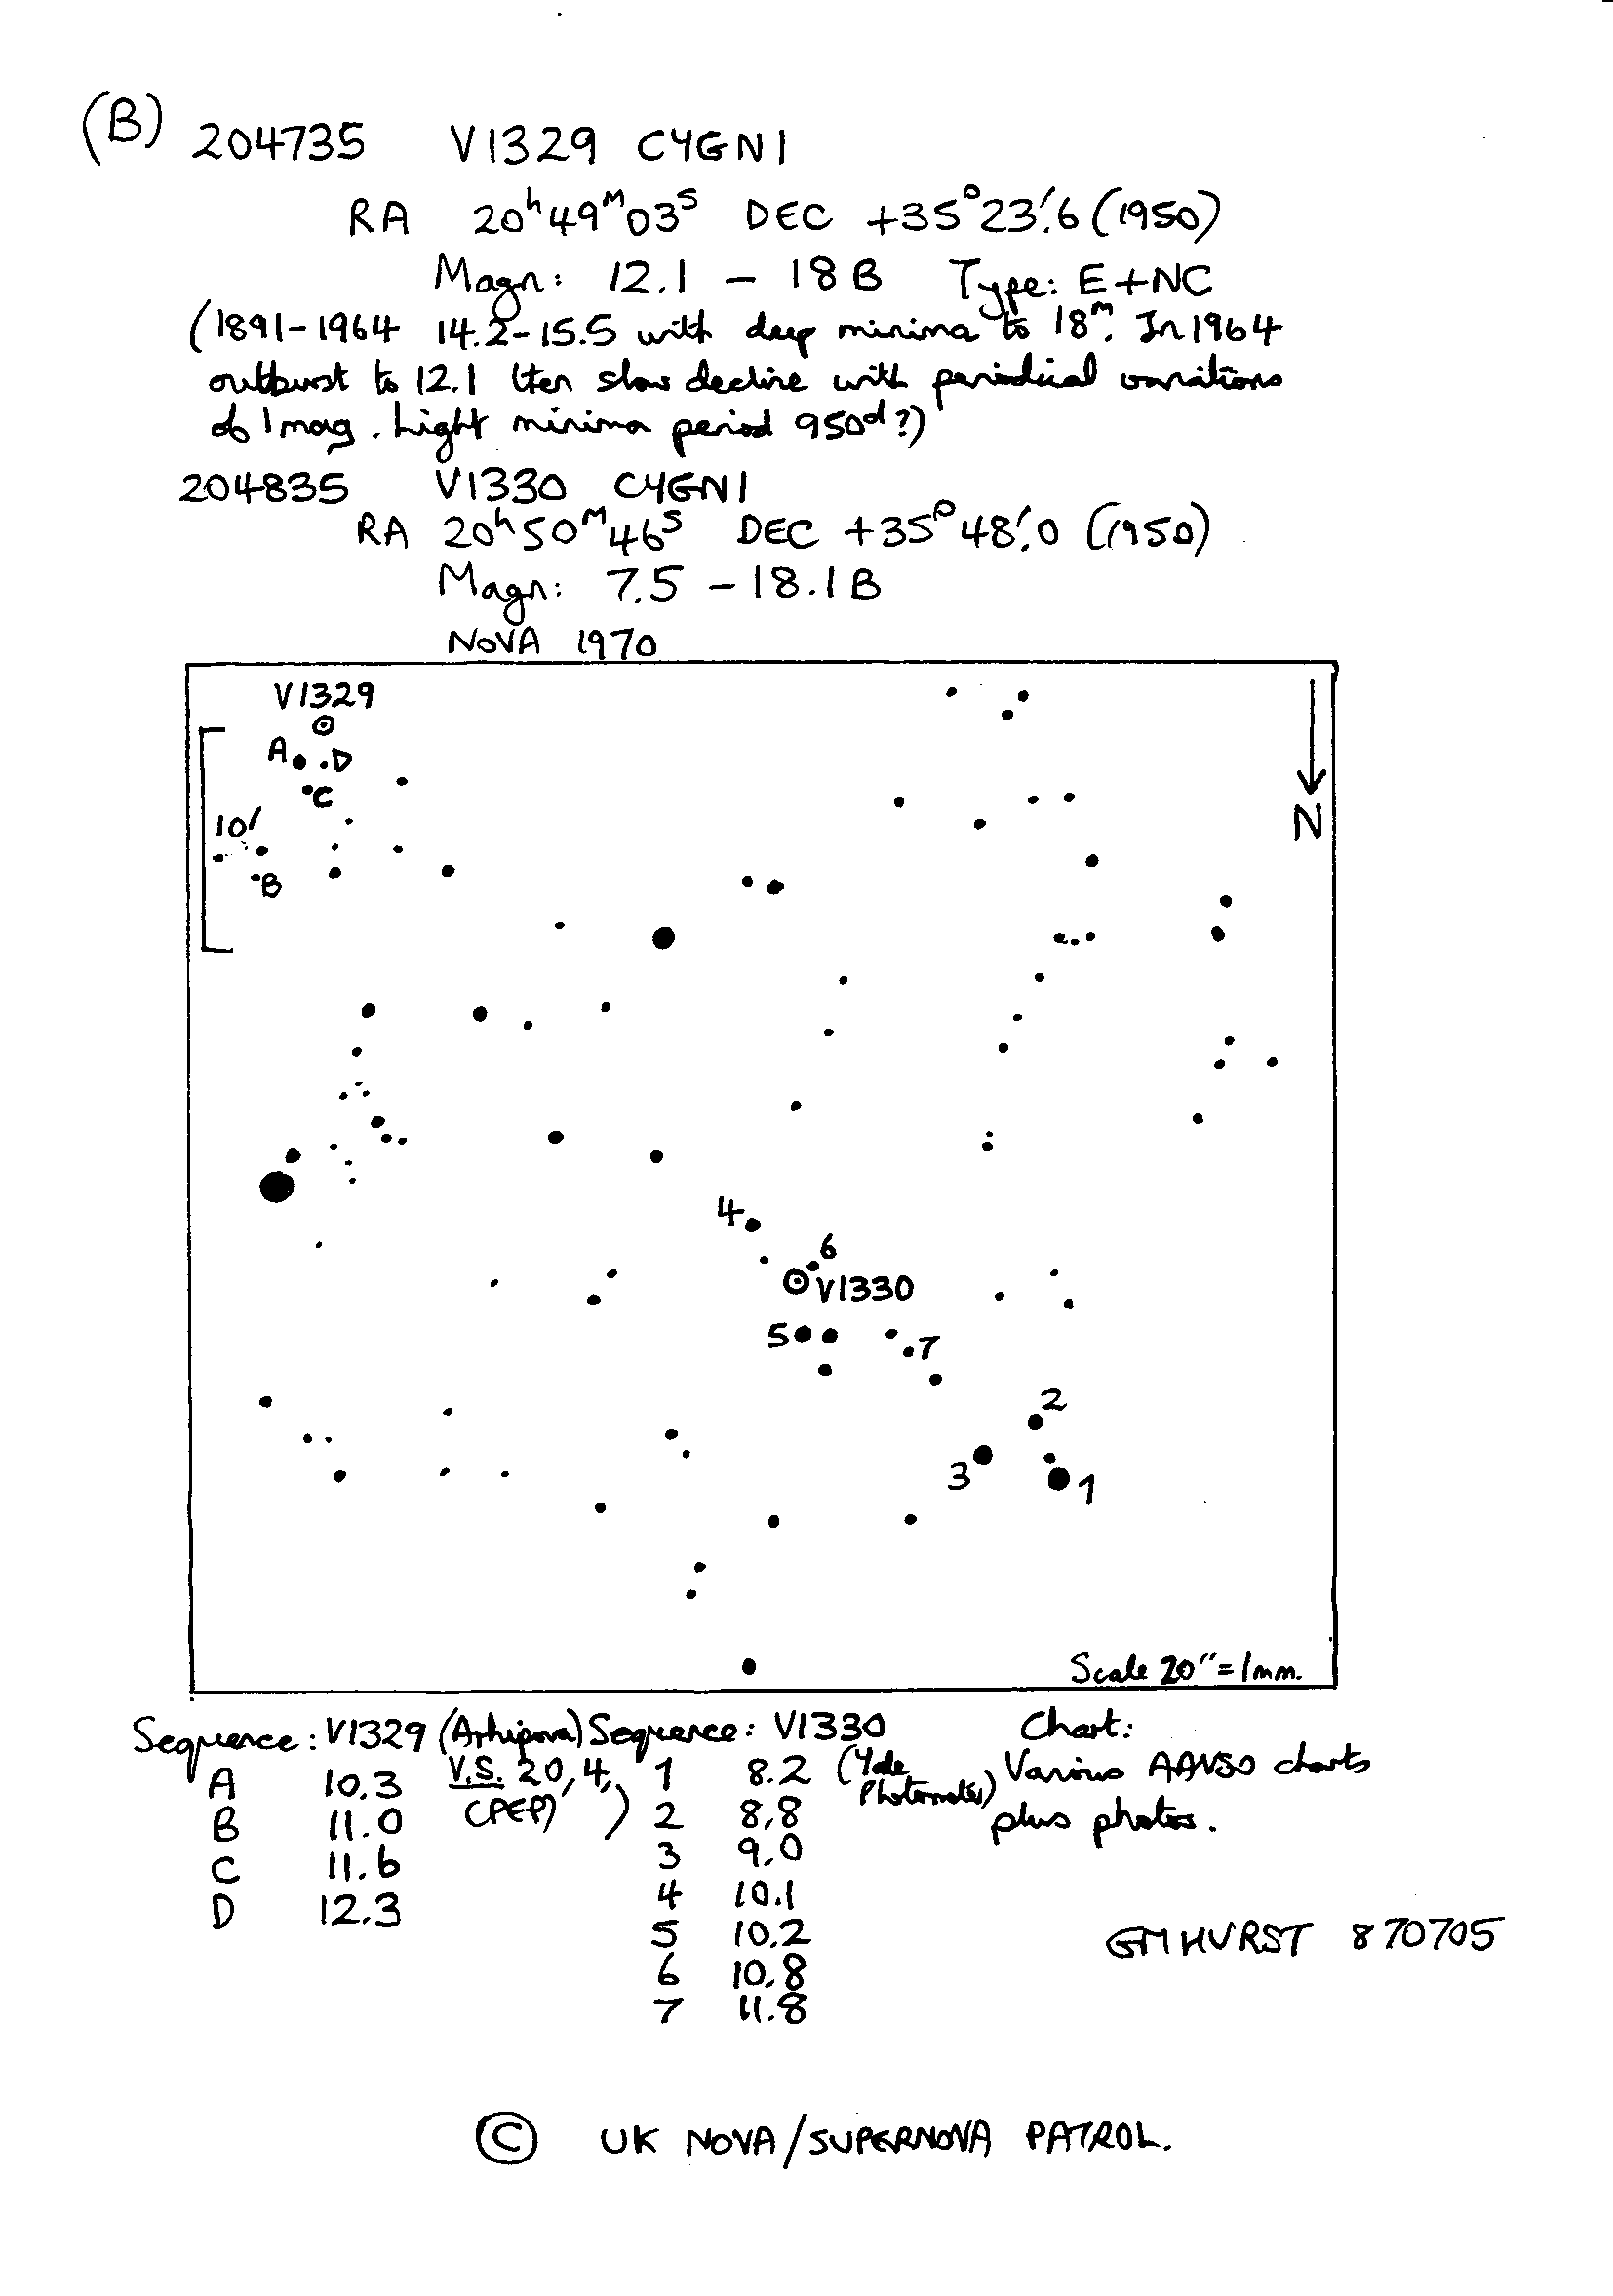 (B) 204735 V1329 CYGNI
RA 20h49m03s DEC +35°23'.6 (1950)
Magn: 12.1 - 18 B Type: E+NC
(1891-1964 14.2-15.5 with deep minima to 18m. In 1964
outburst to 12.1 then slow decline with periodical variations
of 1 mag. Light minima period 950d?)
204835 V1330 CYGNI
RA 20h50m46s DEC +35°48'.0 (1950)
Magn: 7.5 - 18.1 B
NOVA 1970
V1329
A D
C
10'
B
N
4
6
V1330
5
7
2
3
1
Scale 20"=1mm.
Sequence: V1329 (Arhipova) Sequence: V1330 Chart:
A 10.3 V.S. 20,4, 1 8.2 (Yale Various AAVSO charts
B 11.0 (PEP) ) 2 8.8 Photometries) plus photos.
C 11.6 3 9.0
D 12.3 4 10.1
5 10.2 GMHURST 870705
6 10.8
7 11.8
© UK NOVA/SUPERNOVA PATROL.